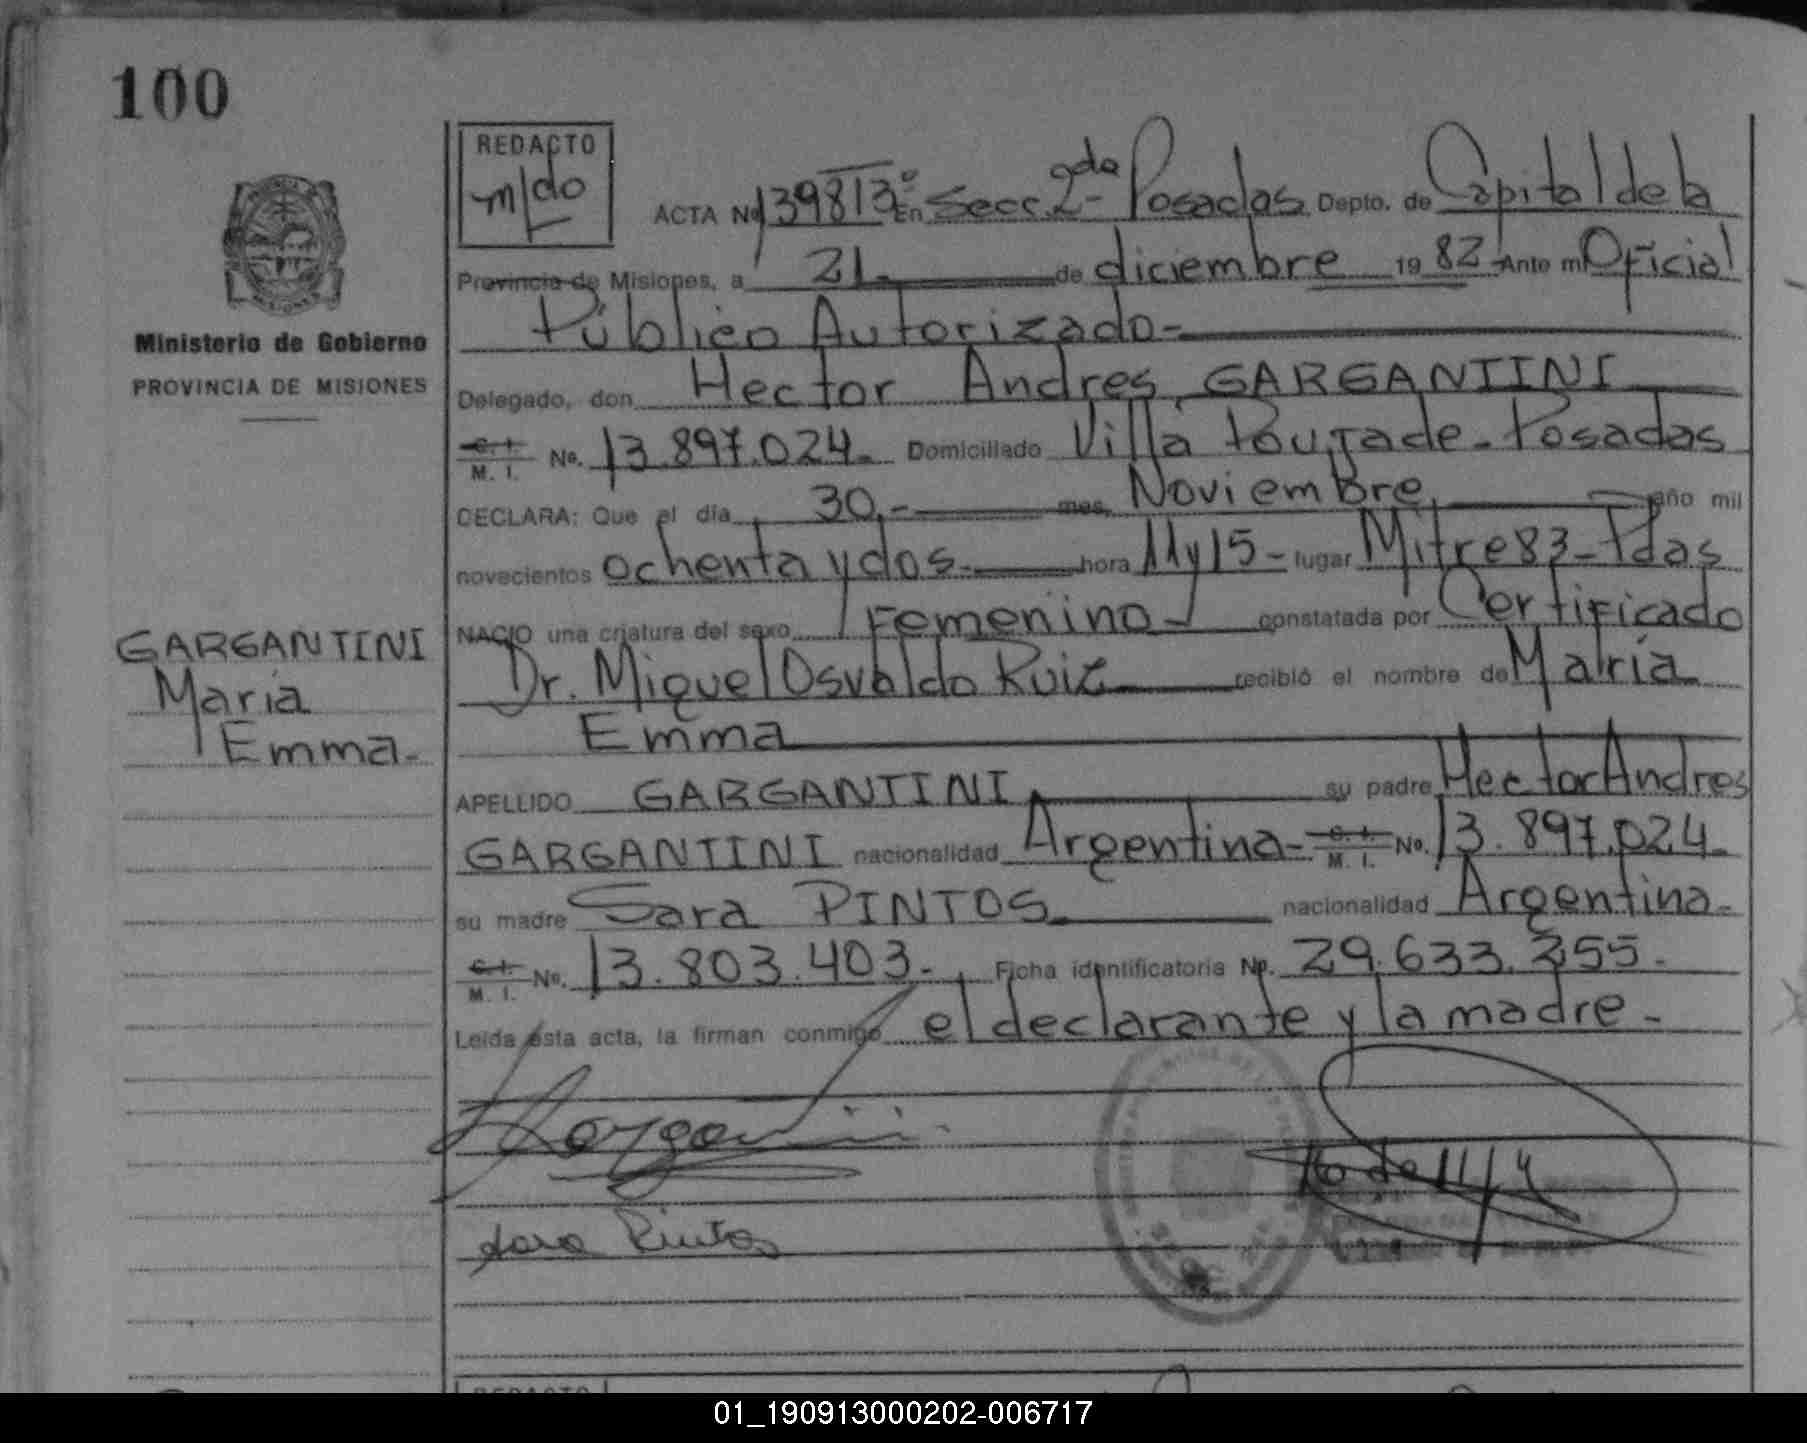 100
REDACTO
m/do
ACTA Nº 139813 En Secc. 2da Posadas Depto. de Capital de la
Provincia de Misiones, a 21 de diciembre 1982 Ante mi Oficial
Público Autorizado-
Ministerio de Gobierno
PROVINCIA DE MISIONES
Delegado, don Hector Andres GARGANTINI
C. I.
M. I. No. 13.897.024- Domiciliado Villa Poujade - Posadas
DECLARA: Que el día 30.- mes, Noviembre año mil
novecientos ochenta y dos hora 11 y 15 - lugar Mitre 83 - Pdas
NACIO una criatura del sexo Femenino constatada por Certificado
GARGANTINI
Maria
Emma-
Dr. Miguel Osvaldo Ruiz recibió el nombre de María
Emma
APELLIDO GARGANTINI su padre Hector Andres
GARGANTINI nacionalidad Argentina- C. I. M. I. No. 13.897.024-
su madre Sara PINTOS nacionalidad Argentina-
C. I.
M. I. No. 13.803.403- Ficha identificatoria No. 29.633.255-
Leída ésta acta, la firman conmigo el declarante y la madre-
Sara Pintos
REDACTO
01_190913000202-006717